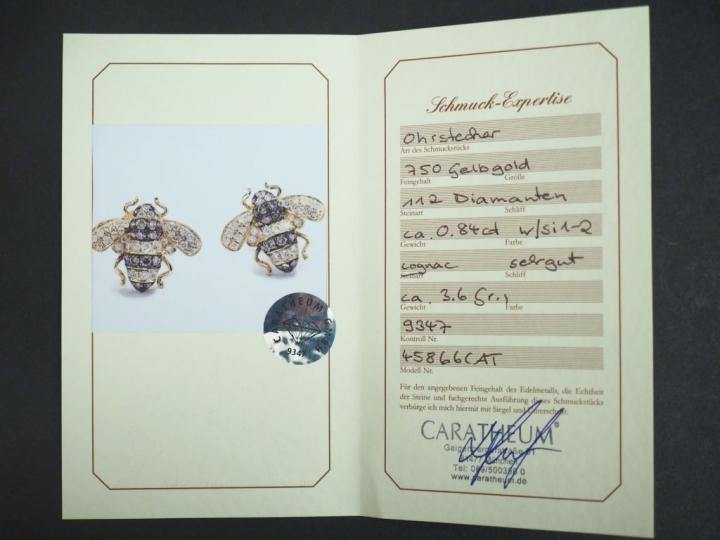 Schmuck-Expertise
Ohrstecker
Art des Schmuckstücks
750 Gelbgold
Feingehalt Größe
112 Diamanten
Steinart Schliff
ca. 0.84ct w/si1-2
Gewicht Farbe
cognac sehrgut
Steinart Schliff
ca. 3.6 Gr.,
Gewicht Farbe
9347
Kontroll Nr.
45866CAT
Modell-Nr.
Für den angegebenen Feingehalt des Edelmetalls, die Echtheit
der Steine und fachgerechte Ausführung dieses Schmuckstücks
verbürge ich mich hiermit mit Siegel und Unterschrift.
CARATHEUM®
München
Tel: 089/500 0
www.caratheum.de
CARATHEUM
9347